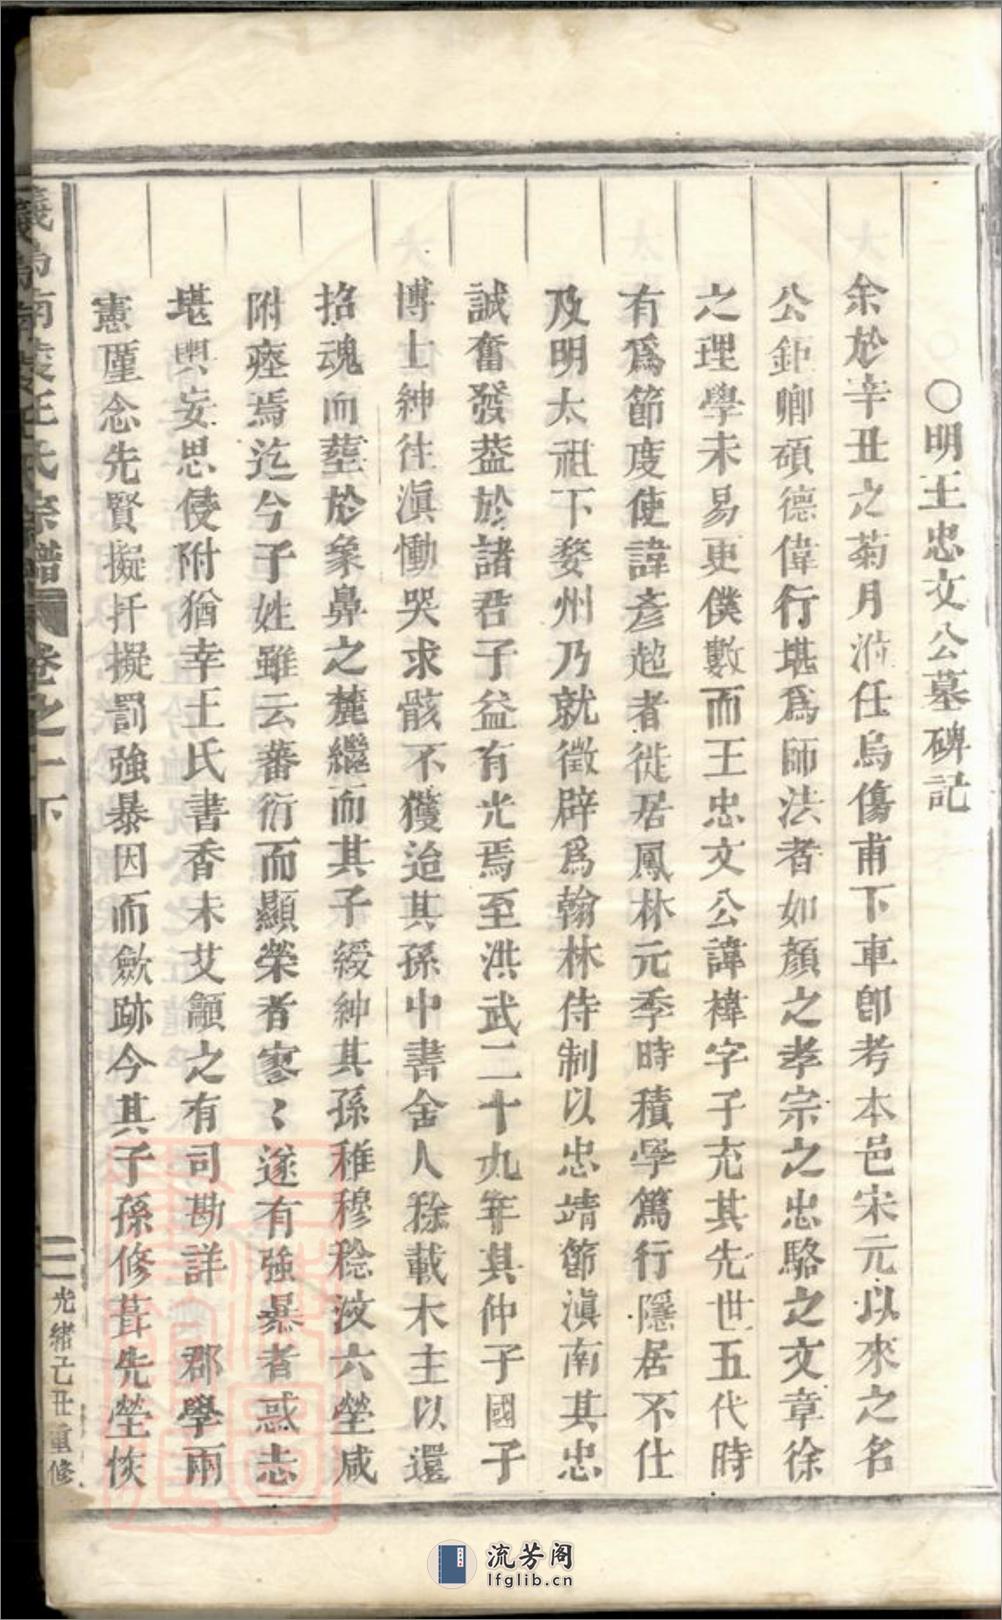 〇明王忠文公墓碑記
余於辛丑之菊月涖任烏傷甫下車卽考本邑宋元以來之名
公鉅卿碩德偉行堪爲師法者如顏之孝宗之忠駱之文章徐
之理學未易更僕數而王忠文公諱褘字子充其先世五代時
有爲節度使諱彥超者徙居鳳林元季時積學篤行隱居不仕
及明太祖下婺州乃就徵辟爲翰林侍制以忠靖節滇南其忠
誠奮發葢於諸君子益有光焉至洪武二十九年其仲子國子
博士紳往滇慟哭求骸不獲迨其孫中書舍人稌載木主以還
招魂而塟於象鼻之麓繼而其子綬紳其孫稚穆稔汶六塋咸
附瘞焉迄今子姓雖云蕃衍而顯榮者寥〻遂有強暴者惑志
堪輿妄思侵附猶幸王氏書香未艾籲之有司勘詳　郡學兩
憲厪念先賢擬扞擬罰強暴因而歛跡今其子孫修葺先塋恢
義烏南陵王氏宗譜　卷之一下　二　光緒己丑重修
流芳阁
lfglib.cn